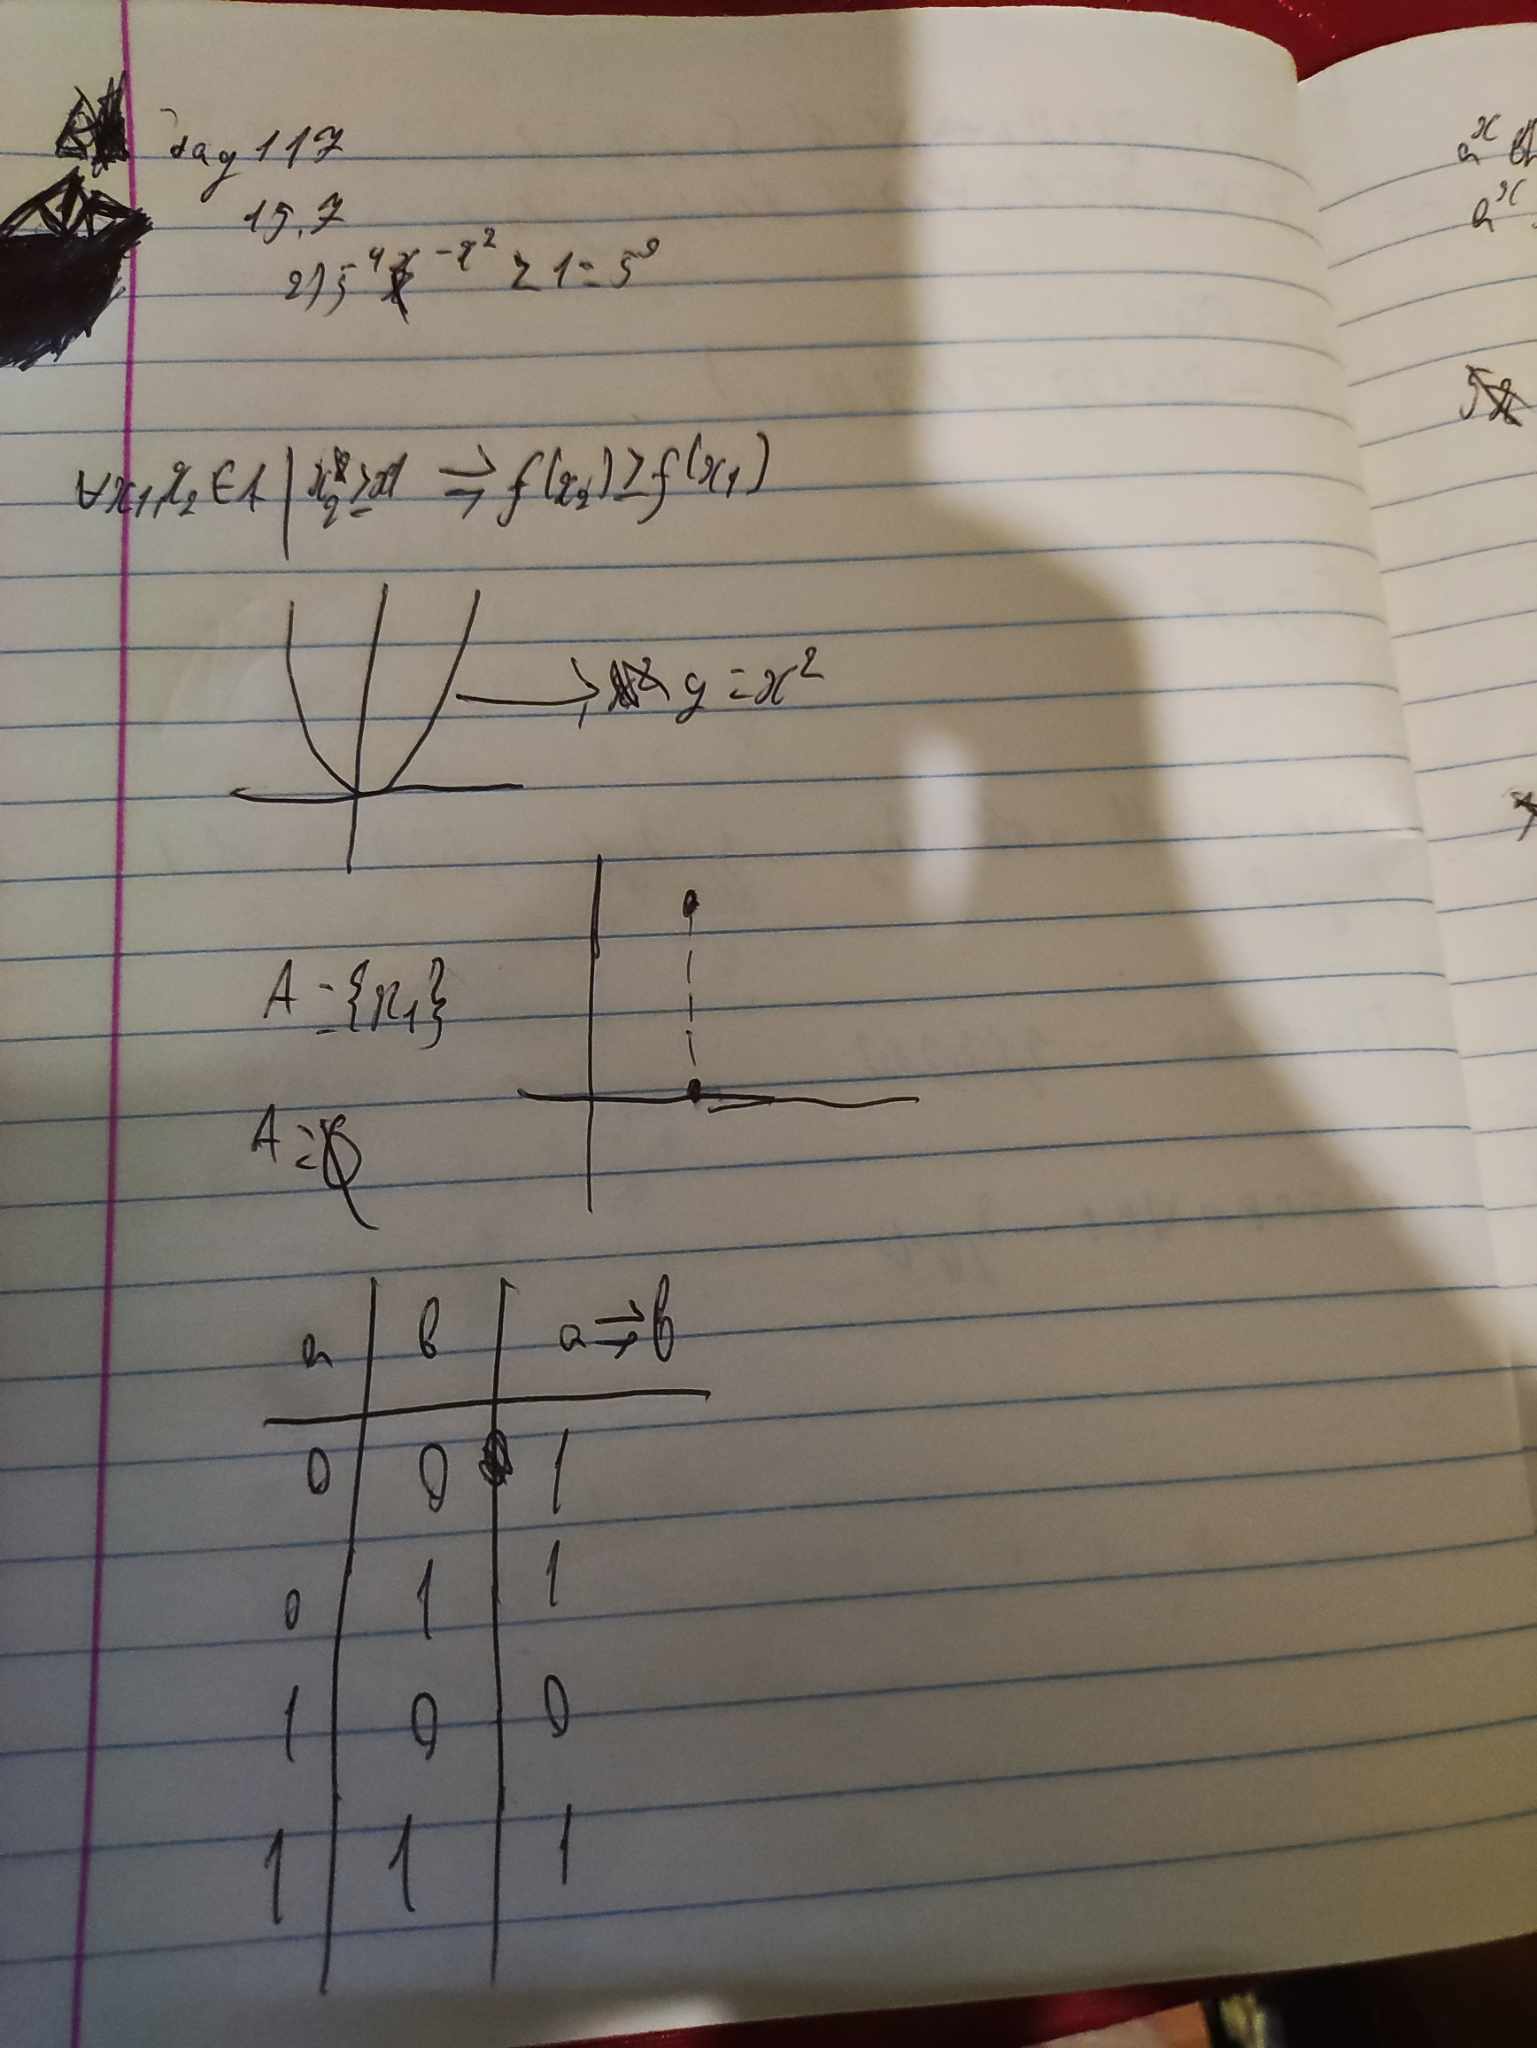 зад 117
15.7
2) 5^(4x-x²) ≥ 1 = 5⁰
∀x₁, x₂ ∈ A | x₂ ≥ x₁ ⇒ f(x₂) ≥ f(x₁)
y = x²
A = {x₁}
A = ∅
a | b | a ⇒ b
0 | 0 | 1
0 | 1 | 1
1 | 0 | 0
1 | 1 | 1
aˣ
aˣ